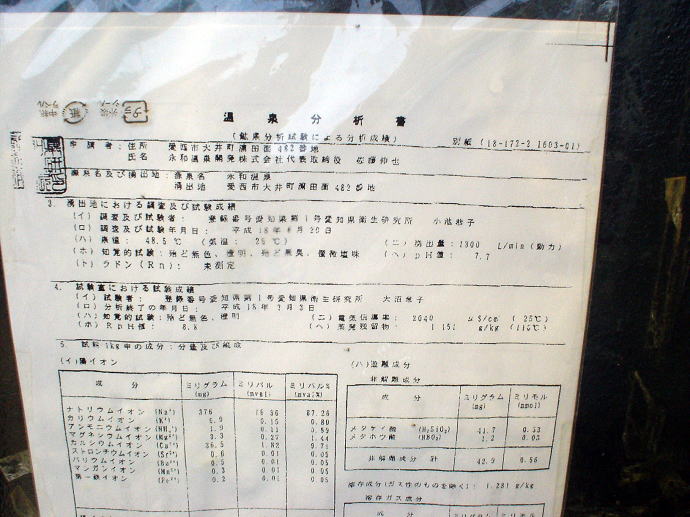 温泉分析書
(鉱泉分析試験による分析成績)
別紙 (18-172-2 1603-01)
申請者：住所 愛西市大井町浦田面482番地
氏名 永和温泉開発株式会社代表取締役 佐藤伸也
源泉名及び湧出地：源泉名 永和温泉
湧出地 愛西市大井町浦田面482番地
3. 湧出地における調査及び試験成績
(イ) 調査及び試験者： 登録番号愛知県第1号愛知県衛生研究所 小池恭子
(ロ) 調査及び試験年月日： 平成18年6月20日
(ハ) 泉温： 48.5℃ (気温： 25℃)
(ニ) 湧出量：1300 L/min(動力)
(ホ) 知覚的試験：殆ど無色、澄明、殆ど無臭、僅微塩味
(ヘ) pH値： 7.7
(ト) ラドン(Rn)： 未測定
4. 試験室における試験成績
(イ) 試験者： 登録番号愛知県第1号愛知県衛生研究所 大沼章子
(ロ) 分析終了の年月日： 平成18年7月3日
(ハ) 知覚的試験：殆ど無色、澄明
(ニ) 電気伝導率： 2040 μS/cm (25℃)
(ホ) RpH値： 8.8
(ヘ) 蒸発残留物： 1.151 g/kg (110℃)
5. 試料1kg中の成分：分量及び組成
(イ) 陽イオン
成分 ミリグラム(mg) ミリバル(mval) ミリバル%(mval%)
ナトリウムイオン (Na⁺) 376 16.36 87.26
カリウムイオン (K⁺) 5.9 0.15 0.80
アンモニウムイオン (NH₄⁺) 1.9 0.11 0.59
マグネシウムイオン (Mg²⁺) 3.3 0.27 1.44
カルシウムイオン (Ca²⁺) 36.5 1.82 9.71
ストロンチウムイオン (Sr²⁺) 0.6 0.01 0.05
バリウムイオン (Ba²⁺) 0.5 0.01 0.05
マンガンイオン (Mn²⁺) 0.3 0.01 0.05
第一鉄イオン (Fe²⁺) 0.2 0.01 0.05
(ハ) 遊離成分
非解離成分
成分 ミリグラム(mg) ミリモル(mmol)
メタケイ酸 (H₂SiO₃) 41.7 0.53
メタホウ酸 (HBO₂) 1.2 0.03
非解離成分 計 42.9 0.56
溶存成分(ガス性のものを除く)： 1.281 g/kg
溶存ガス成分
成分 ミリグラム ミリモル